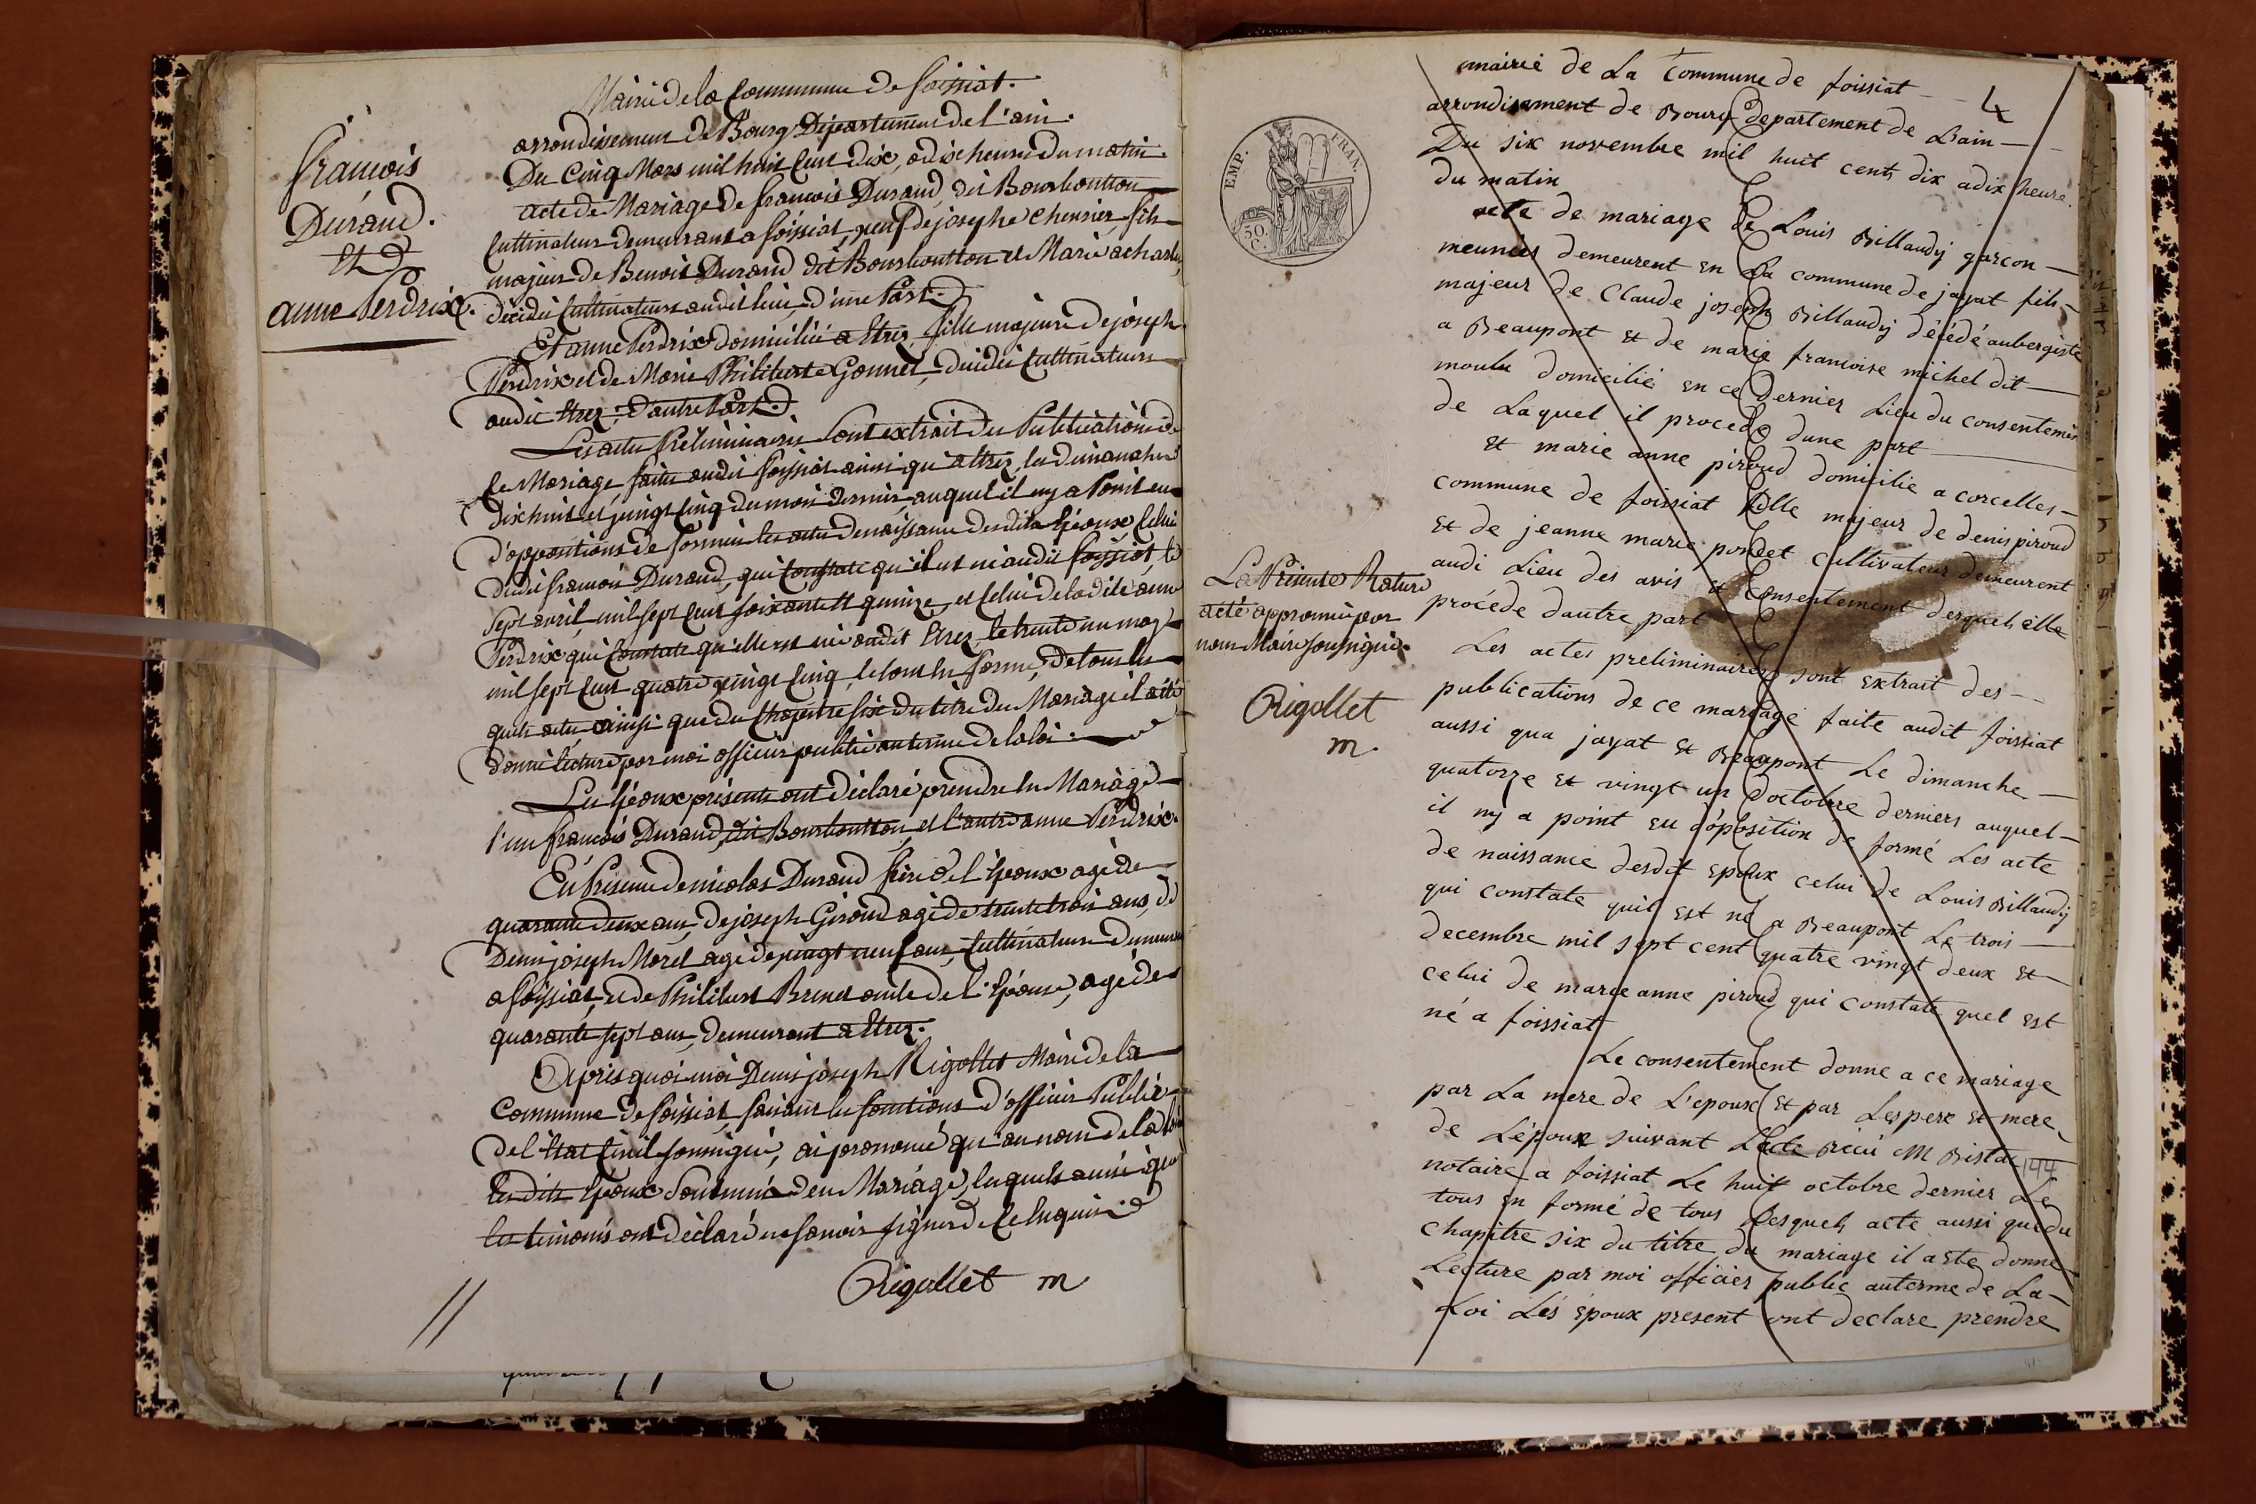 françois
Durand.
Et D
anne Perdrix.
Mairie de la Commune de foissiat.
arrondissement de Bourg Département de l'ain.
Du Cinq Mars mil huit Cent dix, a dix heures du matin
acte de Mariage de françois Durand, dit Bourboutton
Cultivateur demeurant a foissiat, veuf de josephe Chevrier, fils
majeur de Benoit Durand dit Bourboutton et Marie
décédés Cultivateurs audit lieu, d'une Part.
Et anne Perdrix domiciliée a Etrez, fille majeure de joseph
Perdrix et de Marie Philiberte Gonnet, décédés Cultivateurs
audit Etrez; d'autre Part.
Les actes Préliminaires Sont extrait des Publications de
Ce Mariage faites audit foissiat ainsi qu'a Etrez, les dimanches
dix huit et vingt Cinq du mois dernier, auquel il ny a Point eu
d'oppositions de formées les actes de naissance desdits Epoux Celui
dudit francois Durand, qui Constate qu'il est né audit foissiat, le
Sept avril, mil sept Cent soixante et quinze, et Celui de ladite anne
Perdrix qui Constate qu'elle est née audit Etrez, le trente un may
mil sept Cent quatre vingt Cinq, le tout en forme, de tous les
quels actes, ainsi que du Chapitre six du titre du Mariage il a été
donné lecture par moi officier public au terme de la loi.
Les Epoux présents ont déclaré prendre en Mariage
l'un françois Durand, dit Bourboutton, et l'autre anne Perdrix.
En Présence de nicolas Durand frère de l'Epoux agé de
quarante deux ans, de joseph Giroud agé de trente trois ans, de
Denis joseph Morel agé de vingt neuf ans, Cultivateurs demeurant
a foissiat, et de Philibert Brunet oncle de l'Epouse, agé de
quarante sept ans, demeurant a Etrez.
Après quoi moi Denis joseph Rigollet Maire de la
Commune de foissiat, faisant les fonctions d'officier Public
de l'état Civil soussigné, ai prononcé qu'au nom de la loi
lesdits Epoux Sont unis en Mariage, lesquels ainsi que
les témoins ont déclaré ne savoir signer de Ce Enquis
Rigollet m
4
EMP. FRAN.
50 C.
mairie de La Commune de foissiat
arrondisement de Bourg departement de Lain
Du six novembre mil huit cents dix a dix heure
du matin
acte de mariage de Louis Billaudy garçon
meunier demeurent en La commune de jayat fils
majeur de Claude joseph Billaudy décédé aubergiste
a Beaupont et de marie francoise michel dit
moulu domicilié en ce dernier Lieu du consentement
de Laquel il procède dune part
et marie anne piroud domicilie a corcelles
commune de foissiat fille majeur de denis piroud
et de jeanne marie poncet cultivateur demeurent
audi Lieu des avis et Consentement desquels elle
procéde dautre part
Les actes preliminaires sont extrait des
publications de ce mariage faite audit foissiat
aussi qua jayat et Beaupont Le dimanche
quatorze et vingt un d'octobre derniers auquel
il ny a point eu d'opposition de formé Les acte
de naissance desdit epoux celui de Louis Billaudy
qui constate quil est né a Beaupont Le trois
decembre mil sept cent quatre vingt deux et
celui de marie anne piroud qui constate quel est
né a foissiat
Le consentement donne a ce mariage
par La mere de L'epoux et par Les pere et mere
de Lépoux suivant Lacte reçu M Bistac
notaire a foissiat Le huit octobre dernier Le
144
tous en formé de tous Lesquels acte aussi que du
chapitre six du titre du mariage il a ete donne
Lecture par moi officier public au terme de La
Loi Les époux present ont declare prendre
La Présente Rature
acté approuvée par
nous Maire soussigné.
Rigollet
m.